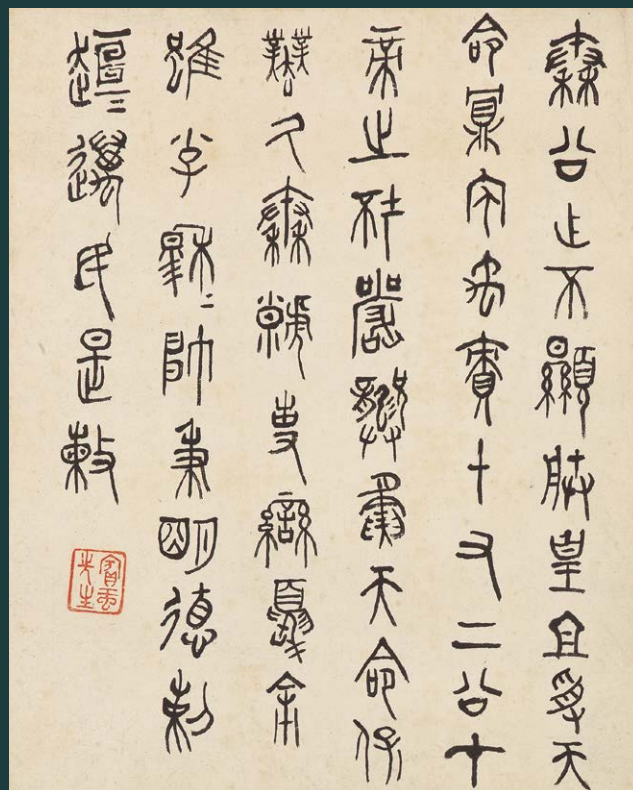 秦公曰不顯朕皇且受天
命鼏宅禹賚十又二公才
帝之坏嚴龏夤天命保
業氒秦虩事蠻夏余
雖小子穆=帥秉明德剌
趄=邁民是敕
賓虹先生